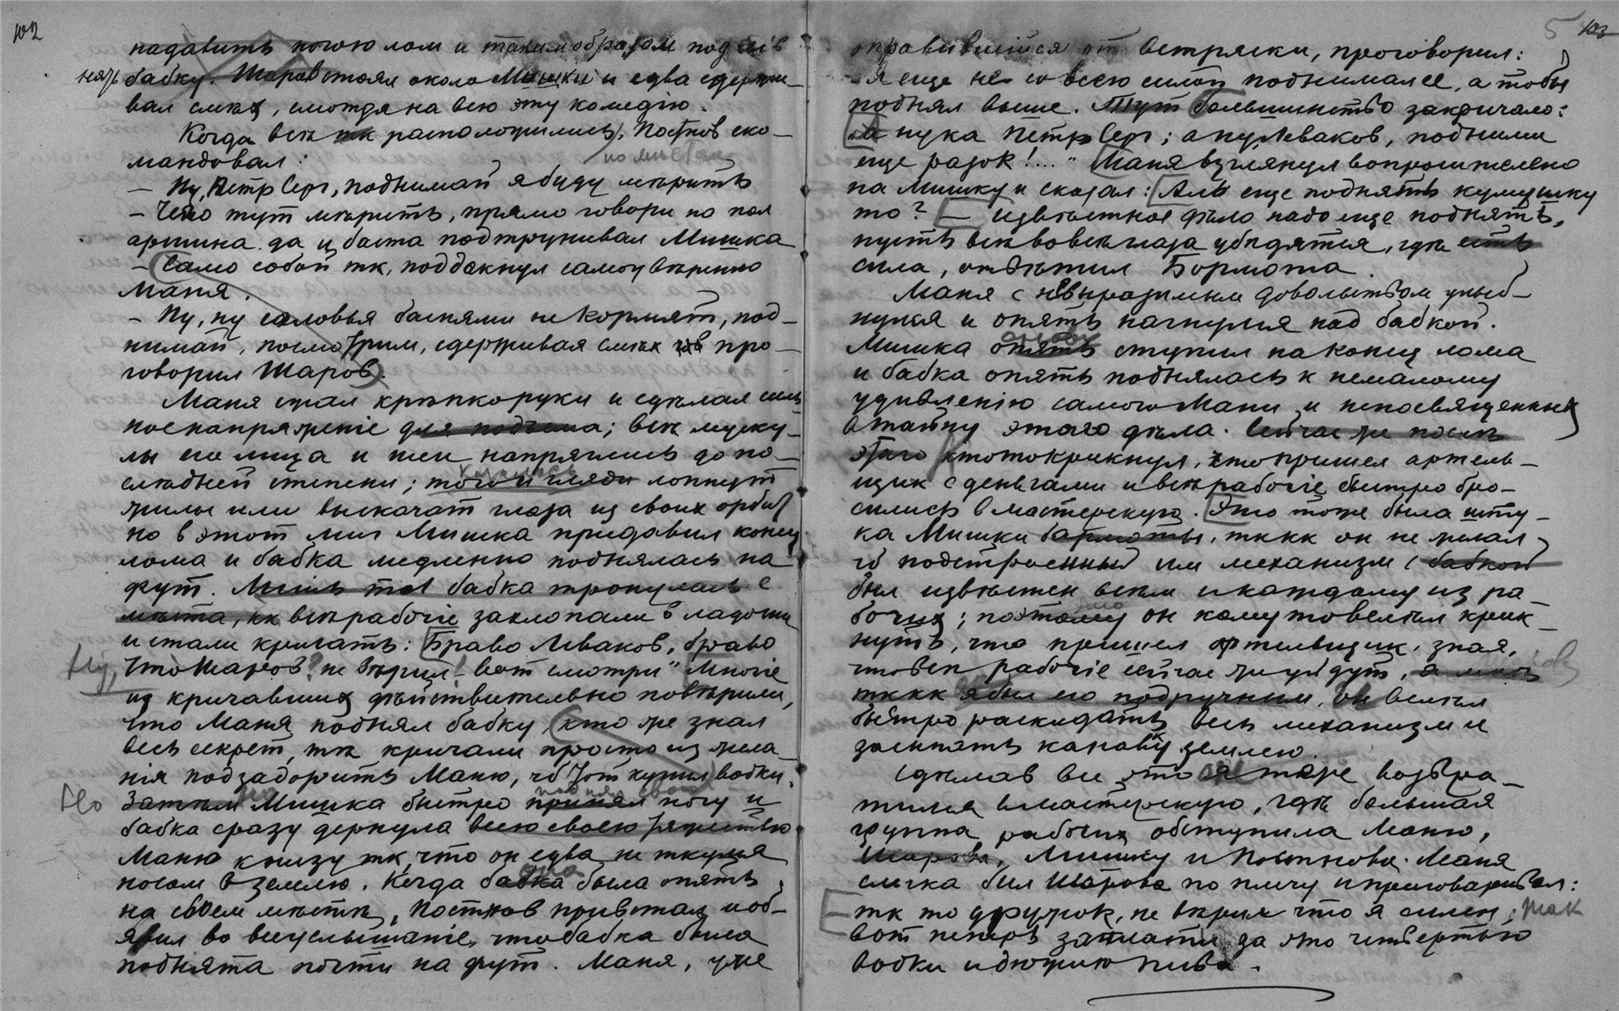 102
надавить ногою лом и таким образом под
нять бабку. Шаров стоял около Мишки и едва сдержи-
вал смех, смотря на всю эту комедію.
Когда все так расположились, Постнов ско-
по местам
мандовал:
— Ну, Петр Серг, поднимай я буду мѣрить
— Чего тут мѣрить, прямо говори на пол
аршина да и баста подтрунивал Мишка
— Само собой тк, поддакнул самоувѣренно
Маня.
— Ну, ну соловья баснями не кормят, под-
нимай, посмотрим, сдерживая смѣх про-
говорил Шаров.
Маня сжал крѣпко руки и сдѣлал силь
ное напряженіе для подъема; все муску-
лы его лица и шеи напряглись до по-
казалось
слѣдней степени; того и гляди лопнут
жилы или выскачат глаза из своих орбит
но в этот миг Мишка придавил конец
лома и бабка медленно поднялась на
фут. Лишь тол бабка тронулась с
мѣста, кк все рабочіе захлопали в ладоши
и стали кричать: Браво Леваков, браво
Ну, что Шаров? не вѣрил! вот смотри" Многіе
из кричавших дѣйствительно повѣрили,
что Маня поднял бабку, кто же знал
весь секрет, тк кричали просто из жела
нія подзадорить Маню, чб тот купил водки.
Но Затем Мишка быстро принял ногу и
бабка сразу дернула всею своею тяжестью
Маню книзу тк, что он едва не ткнулся
она
носом в землю. Когда бабка была опять
на своем мѣсте, Постнов привстал и об-
явил во всеуслышаніе, что бабка была
поднята почти на фут. Маня, уже
103
оправившійся от встряски, проговорил:
— Я еще не со всею силой поднимал ее, а тобы
поднял выше. Тут большинство закричало:
"а нука Петр Серг; а ну Леваков, подними
еще разок!...." Маня взглянул вопросительно
на Мишку и сказал: Аль еще поднять кумушку
то? — извѣстное дѣло надо еще поднять,
пусть все вовсе глаза убедятся, где есть
сила, отвѣтил Бормота.
Маня с невыразимым довольством улыб-
нулся и опять нагнулся над бабкой.
Мишка опять ступил на конец лома
и бабка опять поднялась к немалому
удивленію самого Мани и непосвященных
в тайну этого дѣла. Сейчас же послѣ
этого ктото крикнул, что пришел артель-
щик с деньгами и все рабочіе быстро бро-
сились в мастерскую. Это тоже была шту-
ка Мишки Бармоты, тккк он не желал
чб подстроенный им механизм с бабкой
был извѣстен всем и каждому из ра-
бочих; поэтому он кому то велѣл крик-
нуть, что пришел артельщик, зная,
что все рабочіе сейчас же уйдут, а мнѣ
тккк я был его подручным, он велѣл
быстро раскидать весь механизм и
засыпать канаву землею.
Сдѣлав все это я тоже возвра-
тился в мастерскую, где большая
группа рабочих обступила Маню,
Шарова, Мишку и Постнова. Маня
слегка бил Шарова по плечу и приговаривал:
— тк то дружок, не вѣрил что я силен; так
вот теперь заплати за это четвертью
водки и дюжию пива.